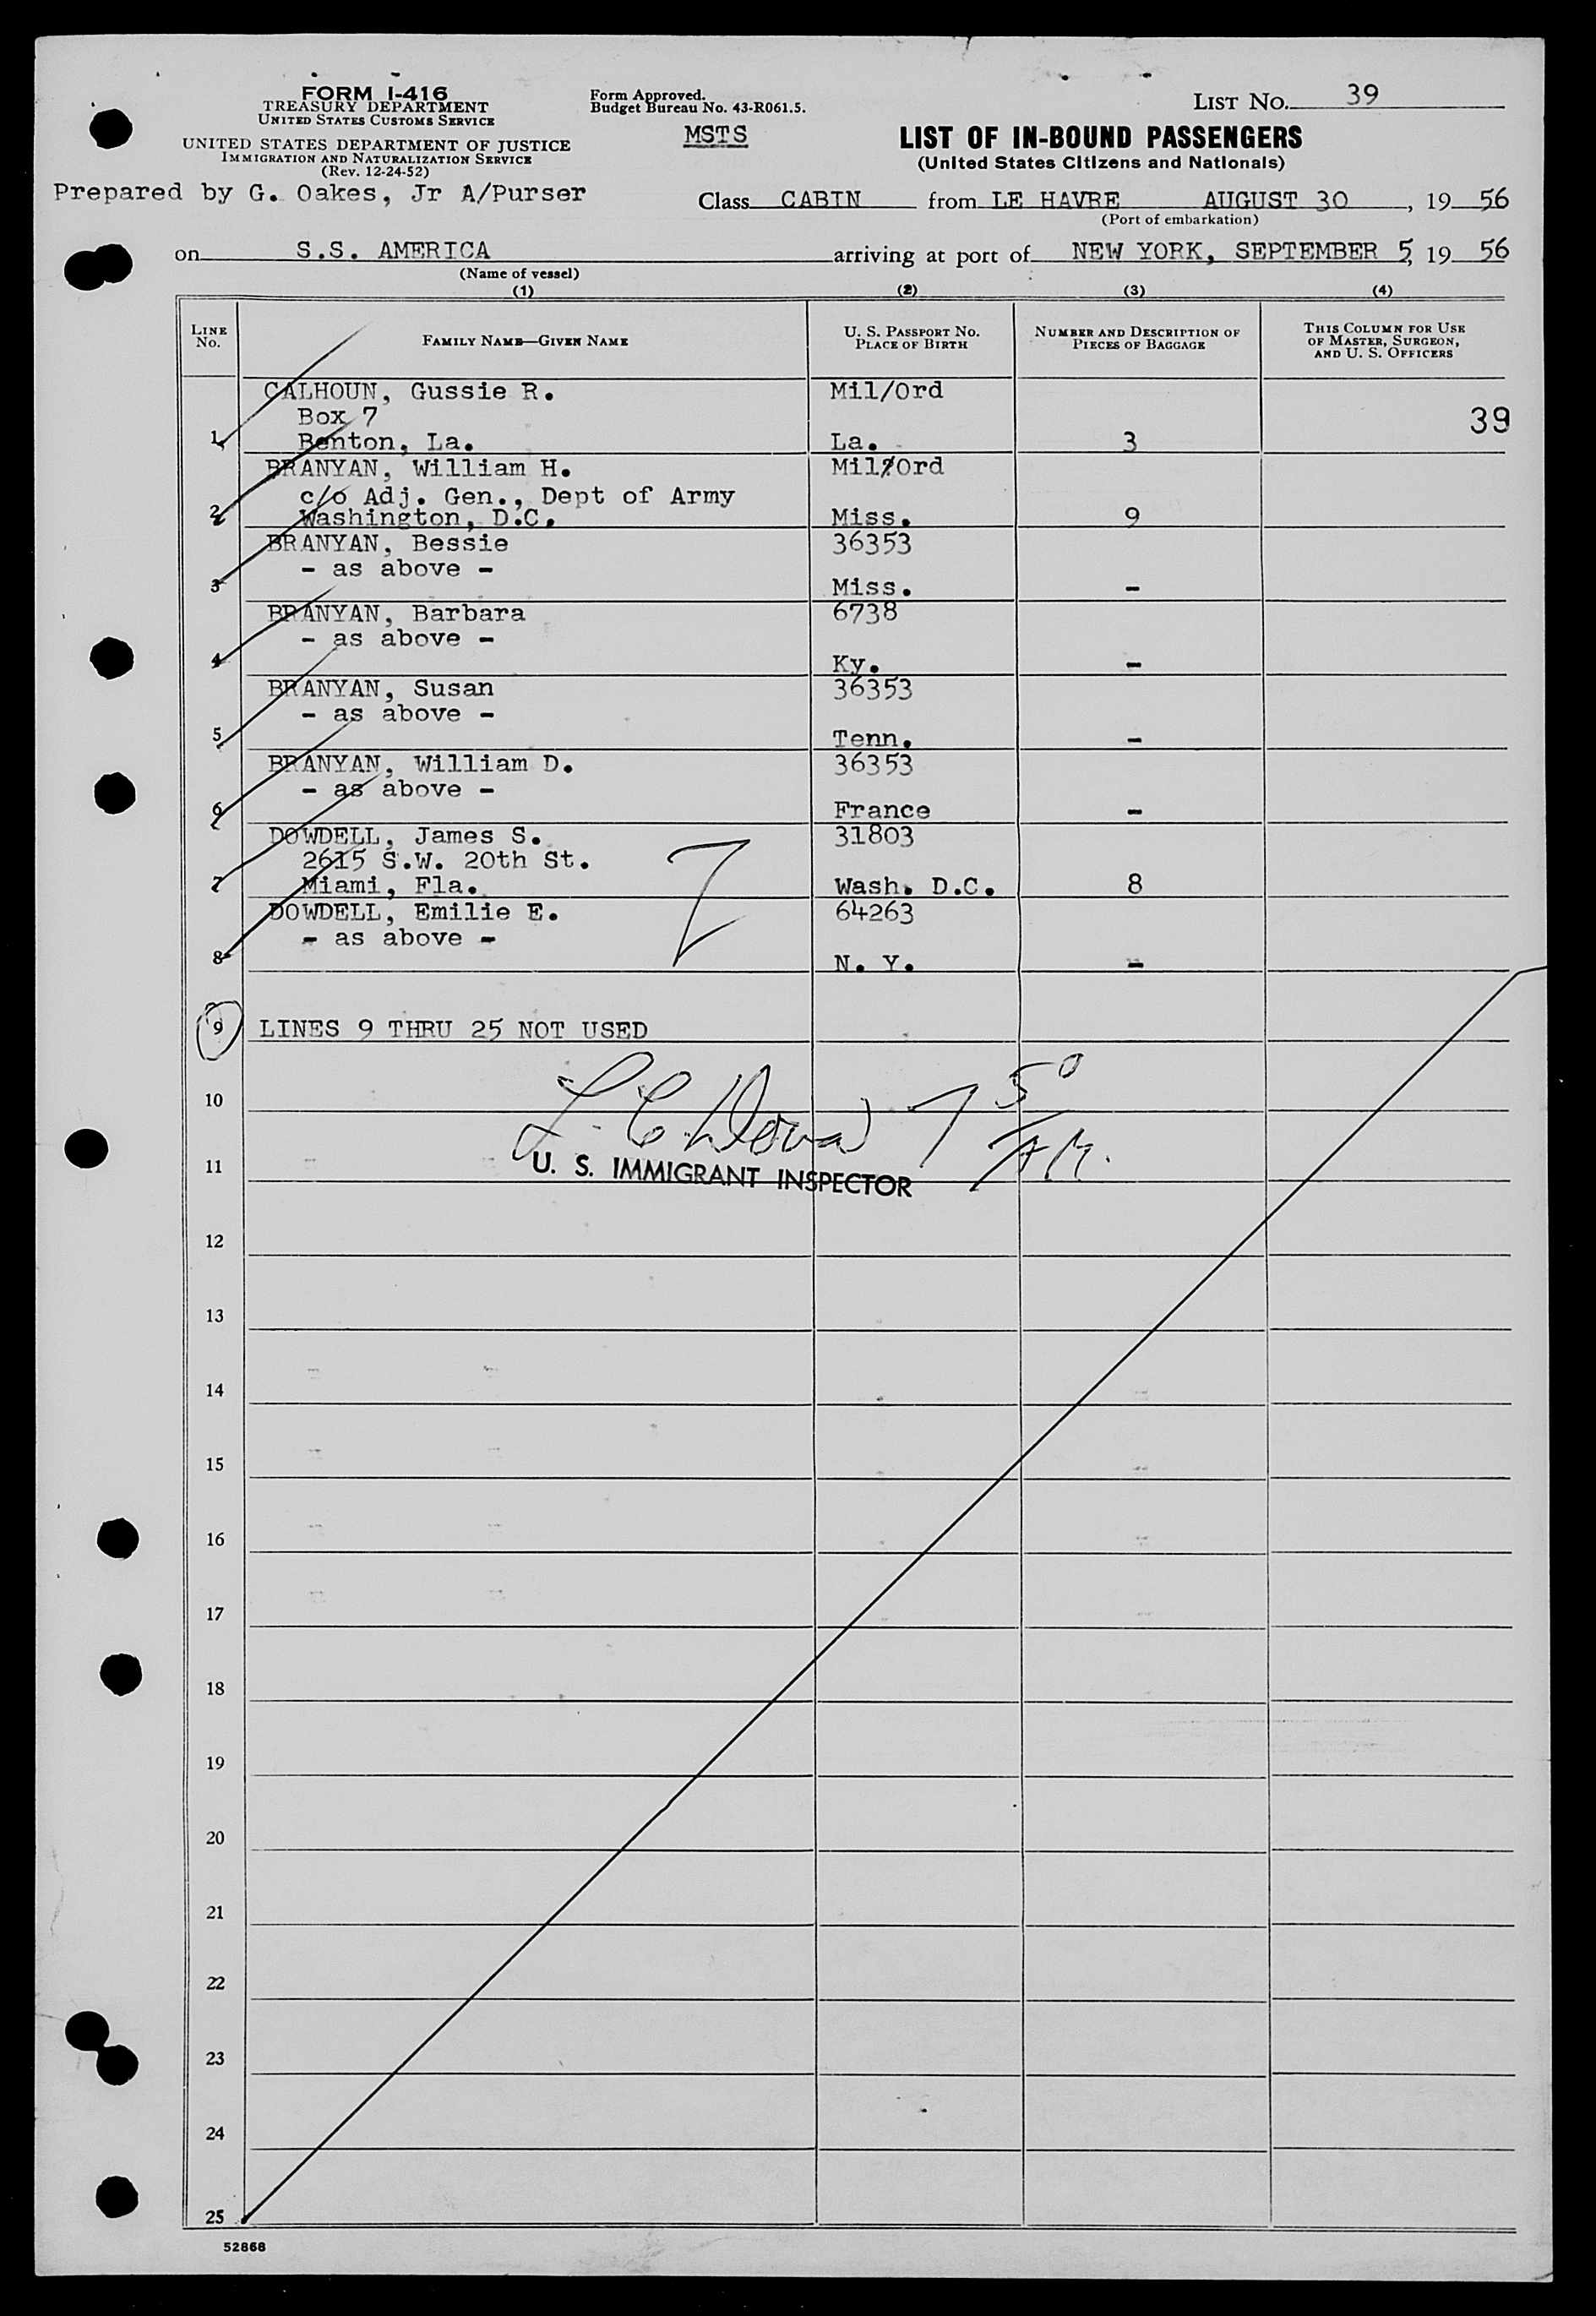 FORM I-416
TREASURY DEPARTMENT
UNITED STATES CUSTOMS SERVICE
UNITED STATES DEPARTMENT OF JUSTICE
IMMIGRATION AND NATURALIZATION SERVICE
(Rev. 12-24-52)
Prepared by G. Oakes, Jr A/Purser
Form Approved.
Budget Bureau No. 43-R061.5.
MSTS
LIST NO. 39
LIST OF IN-BOUND PASSENGERS
(United States Citizens and Nationals)
Class CABIN from LE HAVRE AUGUST 30, 19 56
(Port of embarkation)
on S.S. AMERICA arriving at port of NEW YORK, SEPTEMBER 5, 19 56
(Name of vessel)
(1) (2) (3) (4)
LINE NO. FAMILY NAME—GIVEN NAME U. S. PASSPORT NO. PLACE OF BIRTH NUMBER AND DESCRIPTION OF PIECES OF BAGGAGE THIS COLUMN FOR USE OF MASTER, SURGEON, AND U. S. OFFICERS
CALHOUN, Gussie R. Mil/Ord
Box 7 39
1 Benton, La. La. 3
BRANYAN, William H. Mil/Ord
c/o Adj. Gen., Dept of Army
2 Washington, D.C. Miss. 9
BRANYAN, Bessie 36353
- as above -
3 Miss. -
BRANYAN, Barbara 6738
- as above -
4 Ky. -
BRANYAN, Susan 36353
- as above -
5 Tenn. -
BRANYAN, William D. 36353
- as above -
6 France -
DOWDELL, James S. 31803
2615 S.W. 20th St.
7 Miami, Fla. Wash. D.C. 8
DOWDELL, Emilie E. 64263
- as above -
8 N. Y. -
9 LINES 9 THRU 25 NOT USED
10
7 50 AM.
11
U. S. IMMIGRANT INSPECTOR
12
13
14
15
16
17
18
19
20
21
22
23
24
25
52868